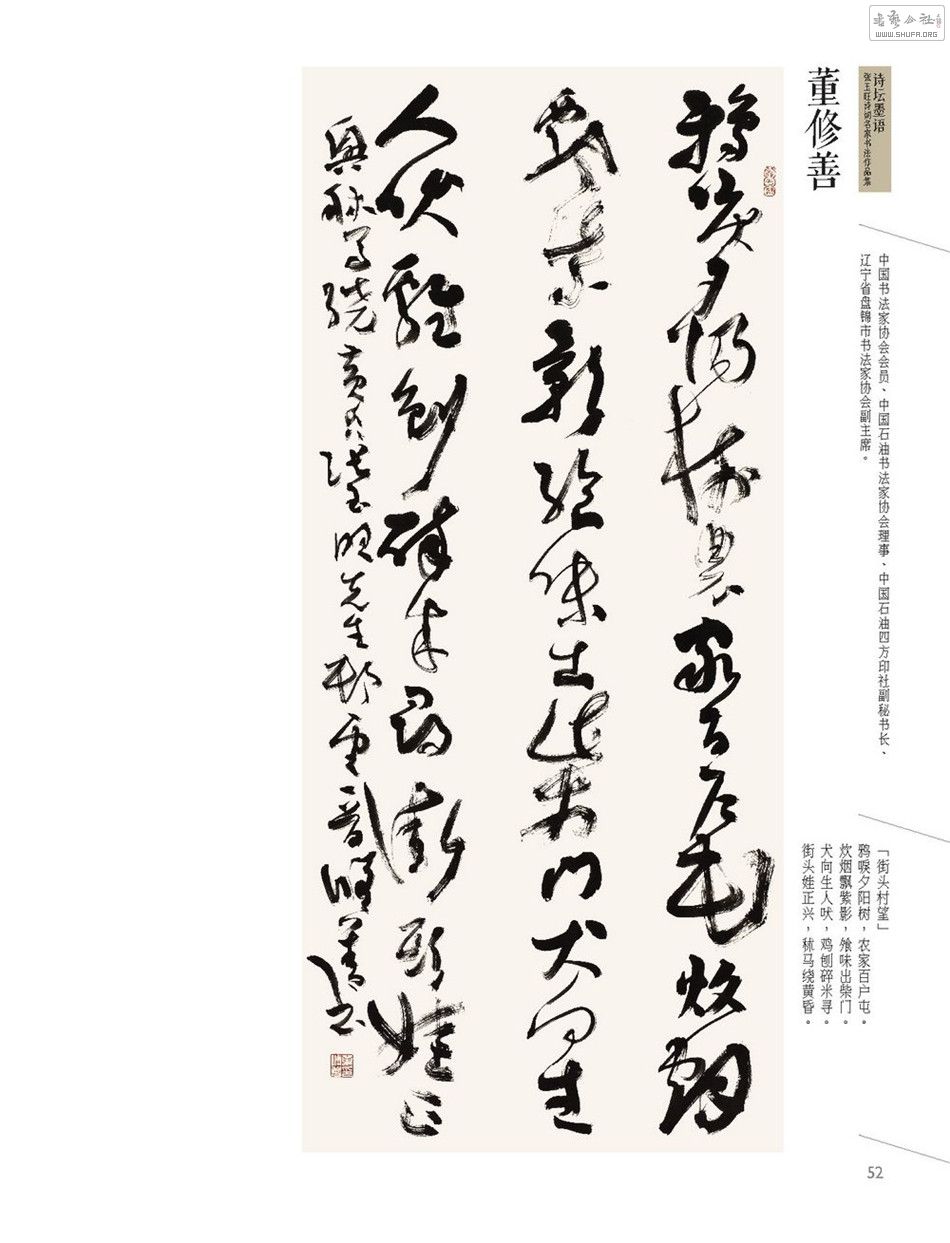 書藝公社
WWW.SHUFA.ORG
诗坛墨语
张玉旺诗词名家书法作品集
董修善
中国书法家协会会员、中国石油书法家协会理事、中国石油四方印社副秘书长、
辽宁省盘锦市书法家协会副主席。
「街头村望」
鸦唳夕阳树，农家百户屯。
炊烟飘紫影，飧味出柴门。
犬向生人吠，鸡刨碎米寻。
街头娃正兴，秫马绕黄昏。
鸦唳夕陽樹農家百户屯炊烟
飘紫影飧味出柴門犬向生
人吠雞刨碎米尋街頭娃正
興秫马绕黄昏張玉旺先生邨望一首修善书
52